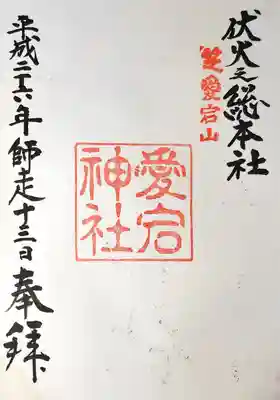 伏火之総本社
芝愛宕山
愛宕
神社
平成二十六年師走十三日
奉拝